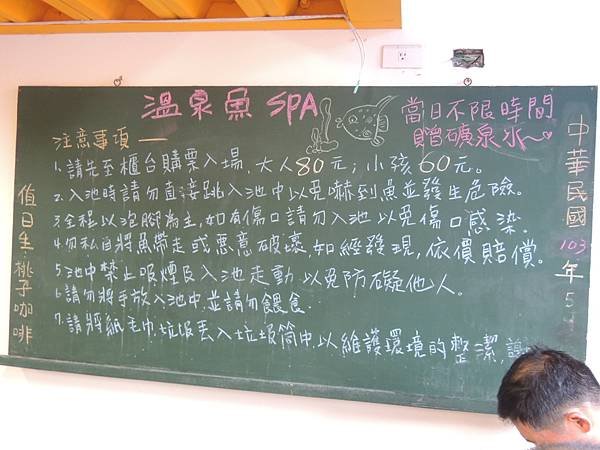 溫泉魚 SPA
當日不限時間
贈礦泉水~
注意事項
1.請先至櫃台購票入場,大人80元;小孩60元。
2.入池時請勿直接跳入池中以免嚇到魚並發生危險。
3.全程以泡腳為主,如有傷口請勿入池以免傷口感染。
4.勿私自將魚帶走或惡意破壞,如經發現,依價賠償。
5.池中禁止吸煙及入池走動以免防礙他人。
6.請勿將手放入池中,並請勿餵食.
7.請將紙毛巾.垃圾丟入垃圾筒中,以維護環境的整潔,
值日生:桃子咖啡
中華民國103年5